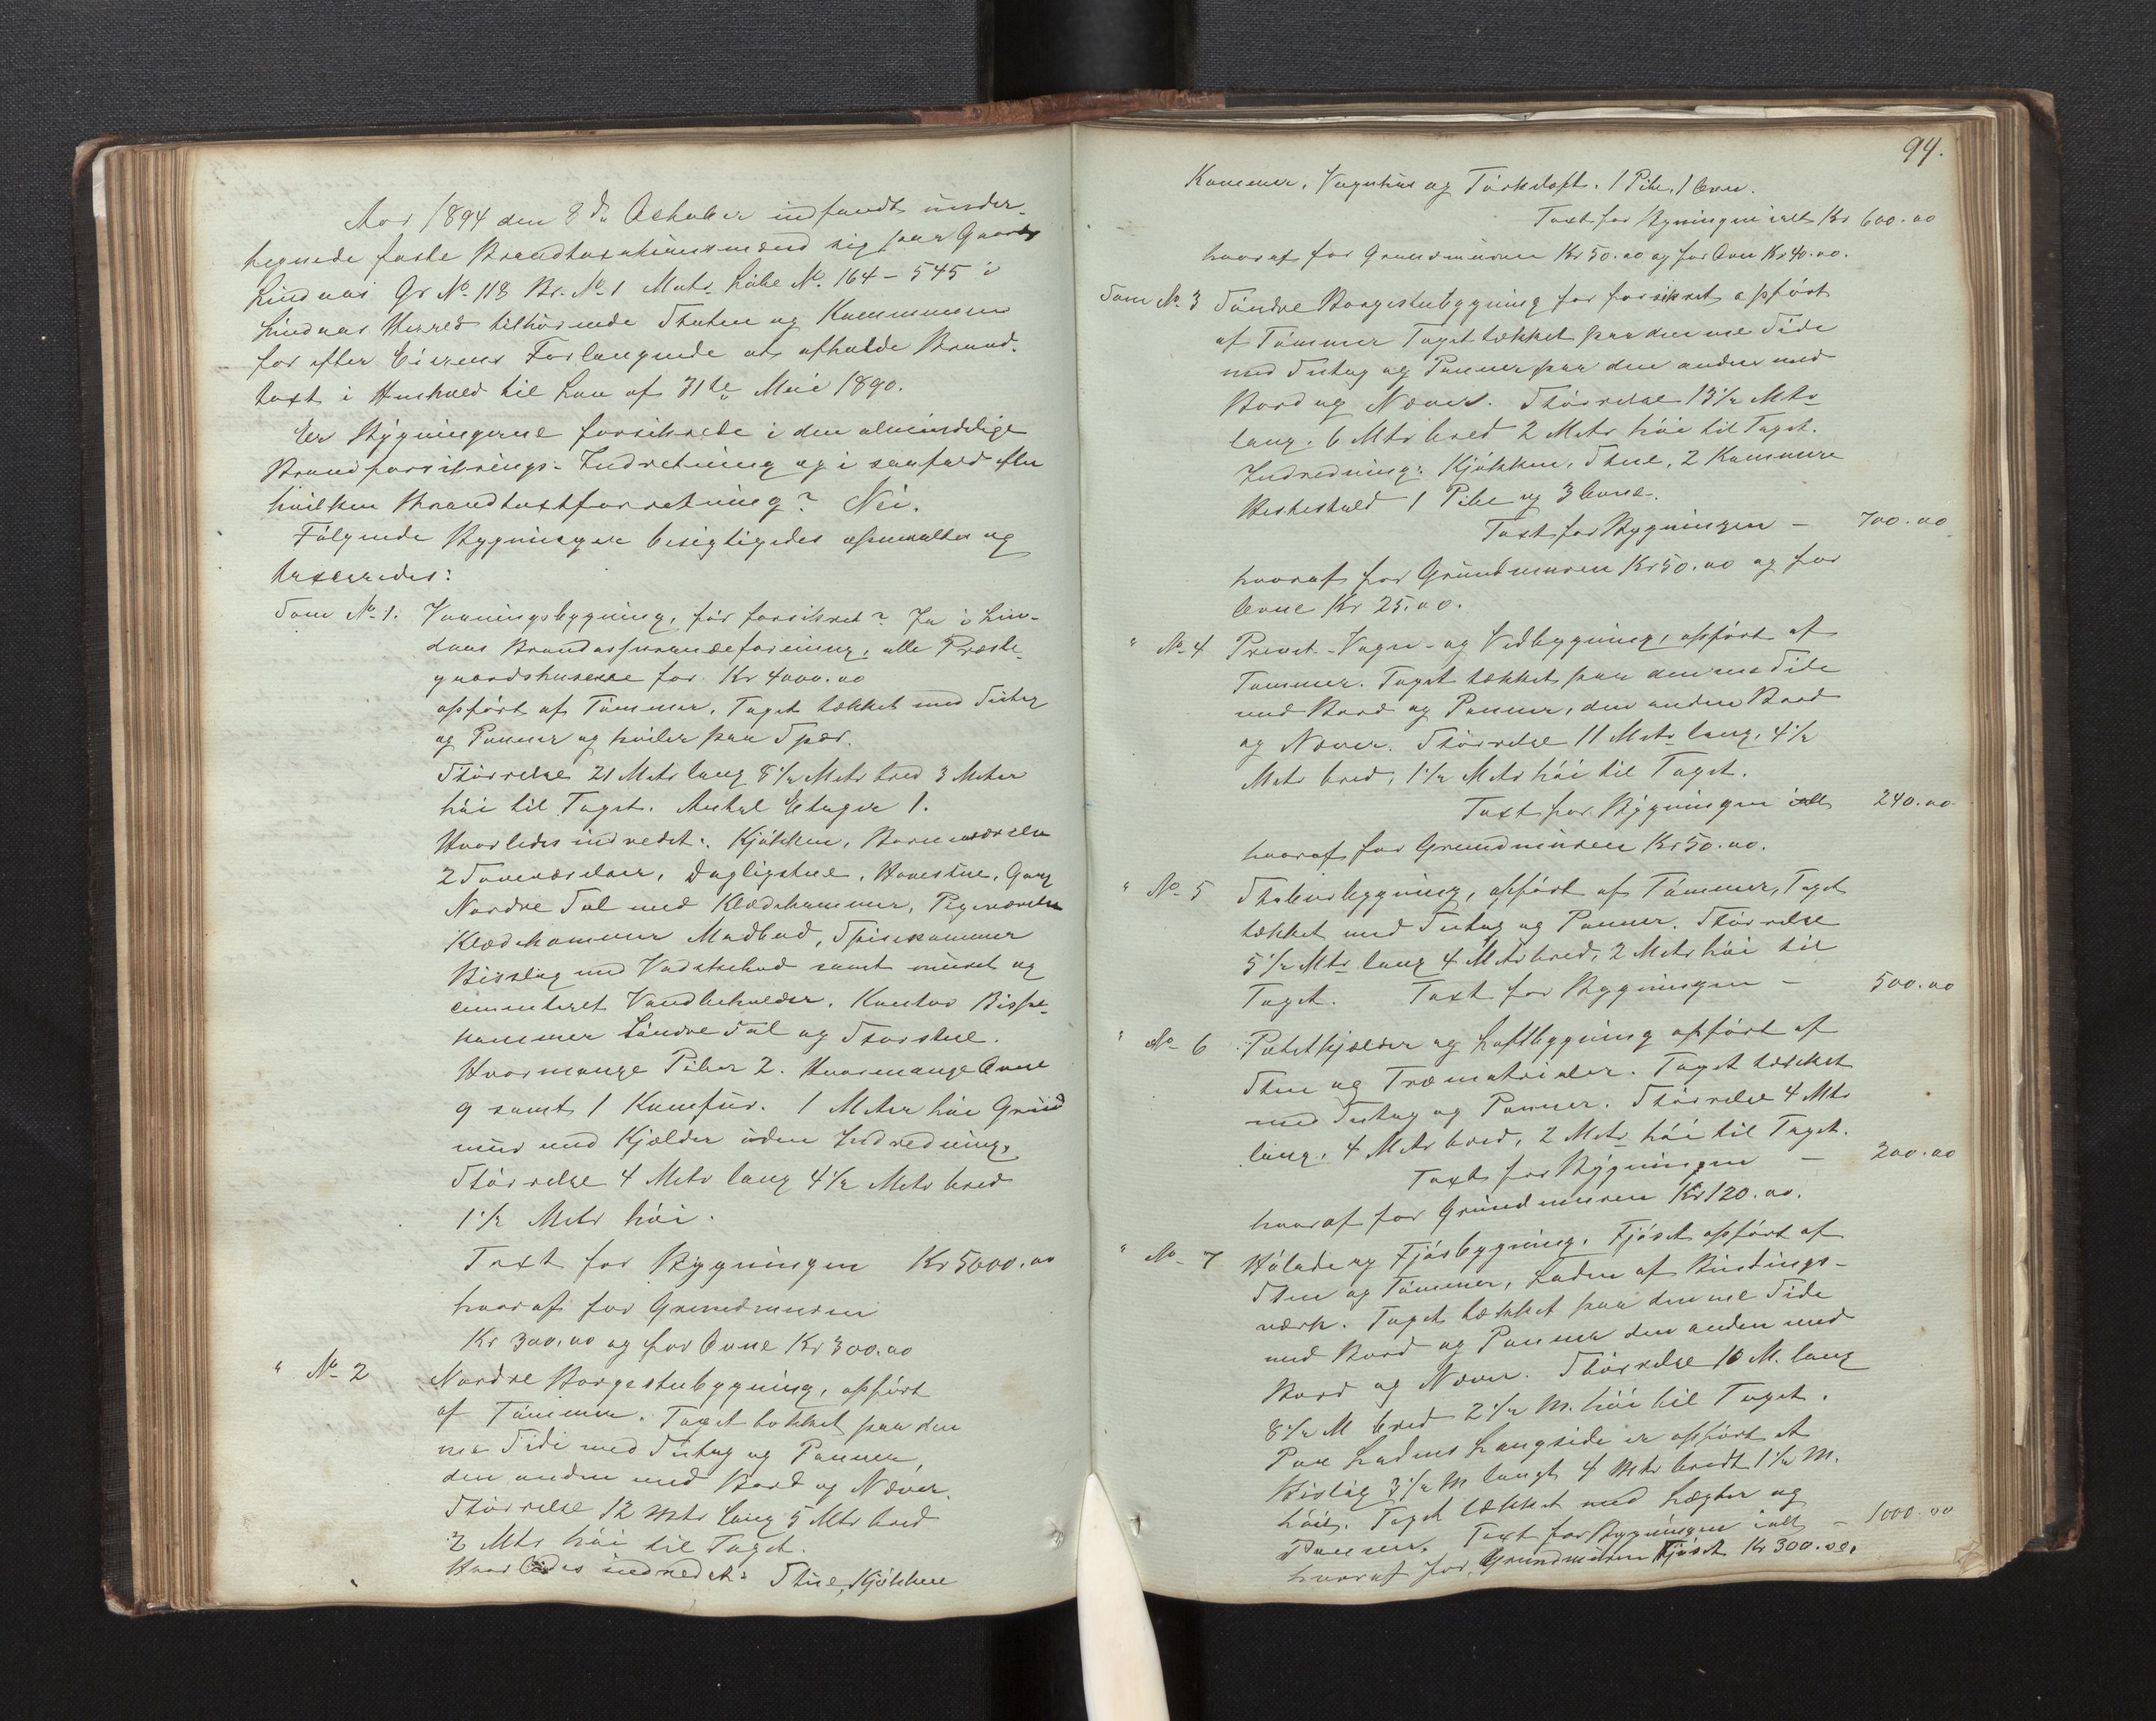 Aar 1894 den 8de Oktober indfandt under-
tegnede faste Brandtaxationsmænd sig paa Gaarden
Lindaas Gr No. 118 Br. No. 1 Matr. Løbe No. 164 – 545 i
Lindaas Herred tilhörende Staten og Kommunen
for efter Eierens Forlangende at afholde Brand-
taxt i Henhold til Lov af 31te Mai 1890.
Er Bygningerne forsikrede i den almindelige
Brandforsikrings-Indretning og i saafald efter
hvilken Brandtaxtforretning? Nei.
Fölgende Bygninger besigtigedes opmaltes og
taxeredes:
Som No. 1. Vaaningsbygning, för forsikret? Ja i Lin-
daas Brandassuranceforening, alle Præste-
gaardshusene for Kr 4000.00
opfört af Tömmer, Taget tækket med Sutag
og Panner og hviler paa Spær.
Störrelse 21 Metr lang 8 1/2 Metr bred 3 Meter
höi til Taget. Antal Etager 1.
Hvorledes indredet: Kjökken, Barneværelse
2 Soveværelser, Dagligstue, Havestue, Gang
Nordre Sal med Klædekammer, Pigeværelse
Klædekammer Madbod, Spisekammer
Bislag med Vadskebod samt muret og
cementeret Vandbeholder. Kontor Bispe-
kammer Söndre Sal og Storstue.
Hvormange Piber 2. Hvormange Ovne
9 samt 1 Komfur. 1 Meter höi Grund
mur med Kjælder uden Indredning,
Störrelse 4 Metr lang 4 1/2 Metr bred
1 1/2 Metr höi.
Taxt for Bygningen Kr 5000.00
hvoraf for Grundmuren
Kr 300.00 og for Ovne Kr 300.00
" No. 2 Nordre Borgestubygning, opfört
af Tömmer. Taget tækket paa den
ene Side med Sutag og Panner,
den anden med Bord og Næver.
Störrelse 12 Mtr lang 5 Mtr bred
2 Mtr höi til Taget.
Hvorledes indredet: Stue, Kjökken
94.
Kammer, Vognhus og Törkeloft. 1 Pibe, 1 Ovn.
Taxt for Bygningen ialt Kr 600.00
hvoraf for Grundmuren Kr 50.00 og for Ovn Kr 40.00.
Som No. 3 Söndre Borgestubygning för forsikret opfört
af Tömmer Taget tækket paa den ene Side
med Sutag og Panner paa den anden med
Bord og Næver. Störrelse 13 1/2 Mtr
lang. 6 Mtr bred 2 Metr höi til Taget.
Indredning: Kjökken, Stue, 2 Kammere
Hestestald 1 Pibe og 3 Ovne.
Taxt for Bygningen – 700.00
hvoraf for Grundmuren Kr 50.00 og for
Ovne Kr 25.00.
" No. 4 Privet- Vogn- og Vedbygning, opfört af
Tømmer. Taget tækket paa den ene Side
med Bord og Panner, den anden Bord
og Næver. Störrelse 11 Metr lang, 4 1/2
Metr bred, 1 1/2 Metr höi til Taget.
Taxt for Bygningen ialt 240.00
hvoraf for Grundmuren Kr 50.00.
" No. 5 Stabursbygning, opfört af Tömmer, Taget
tækket med Sutag og Panner. Störrelse
5 1/2 Mtr lang 4 Metr bred, 2 Metr höi til
Taget. Taxt for Bygningen – 500.00
" No. 6 Potetkjælder og Loftbygning opfört af
Sten og Træmaterialer. Taget tækket
med Sutag og Panner. Störrelse 4 Mtr
lang, 4 Metr bred, 2 Metr höi til Taget.
Taxt for Bygningen – 200.00
hvoraf for Grundmuren Kr 120.00.
" No. 7 Hölade og Fjösbygning. Fjöset opfört af
Sten og Tömmer, Laden af Bindings-
værk. Taget tækket paa den ene Side
med Bord og Panner den anden med
Bord og Næver. Störrelse 18 M. lang
8 1/2 M bred 2 1/2 M. höi til Taget.
Paa Ladens Langside er opfört et
Bislag 3 1/2 M langt 4 Mtr bredt 1 1/2 M.
höit. Taget tækket med Lægter og
Panner. Taxt for Bygningen ialt – 1000.00
hvoraf for Grundmuren Fjöset Kr 300.00.